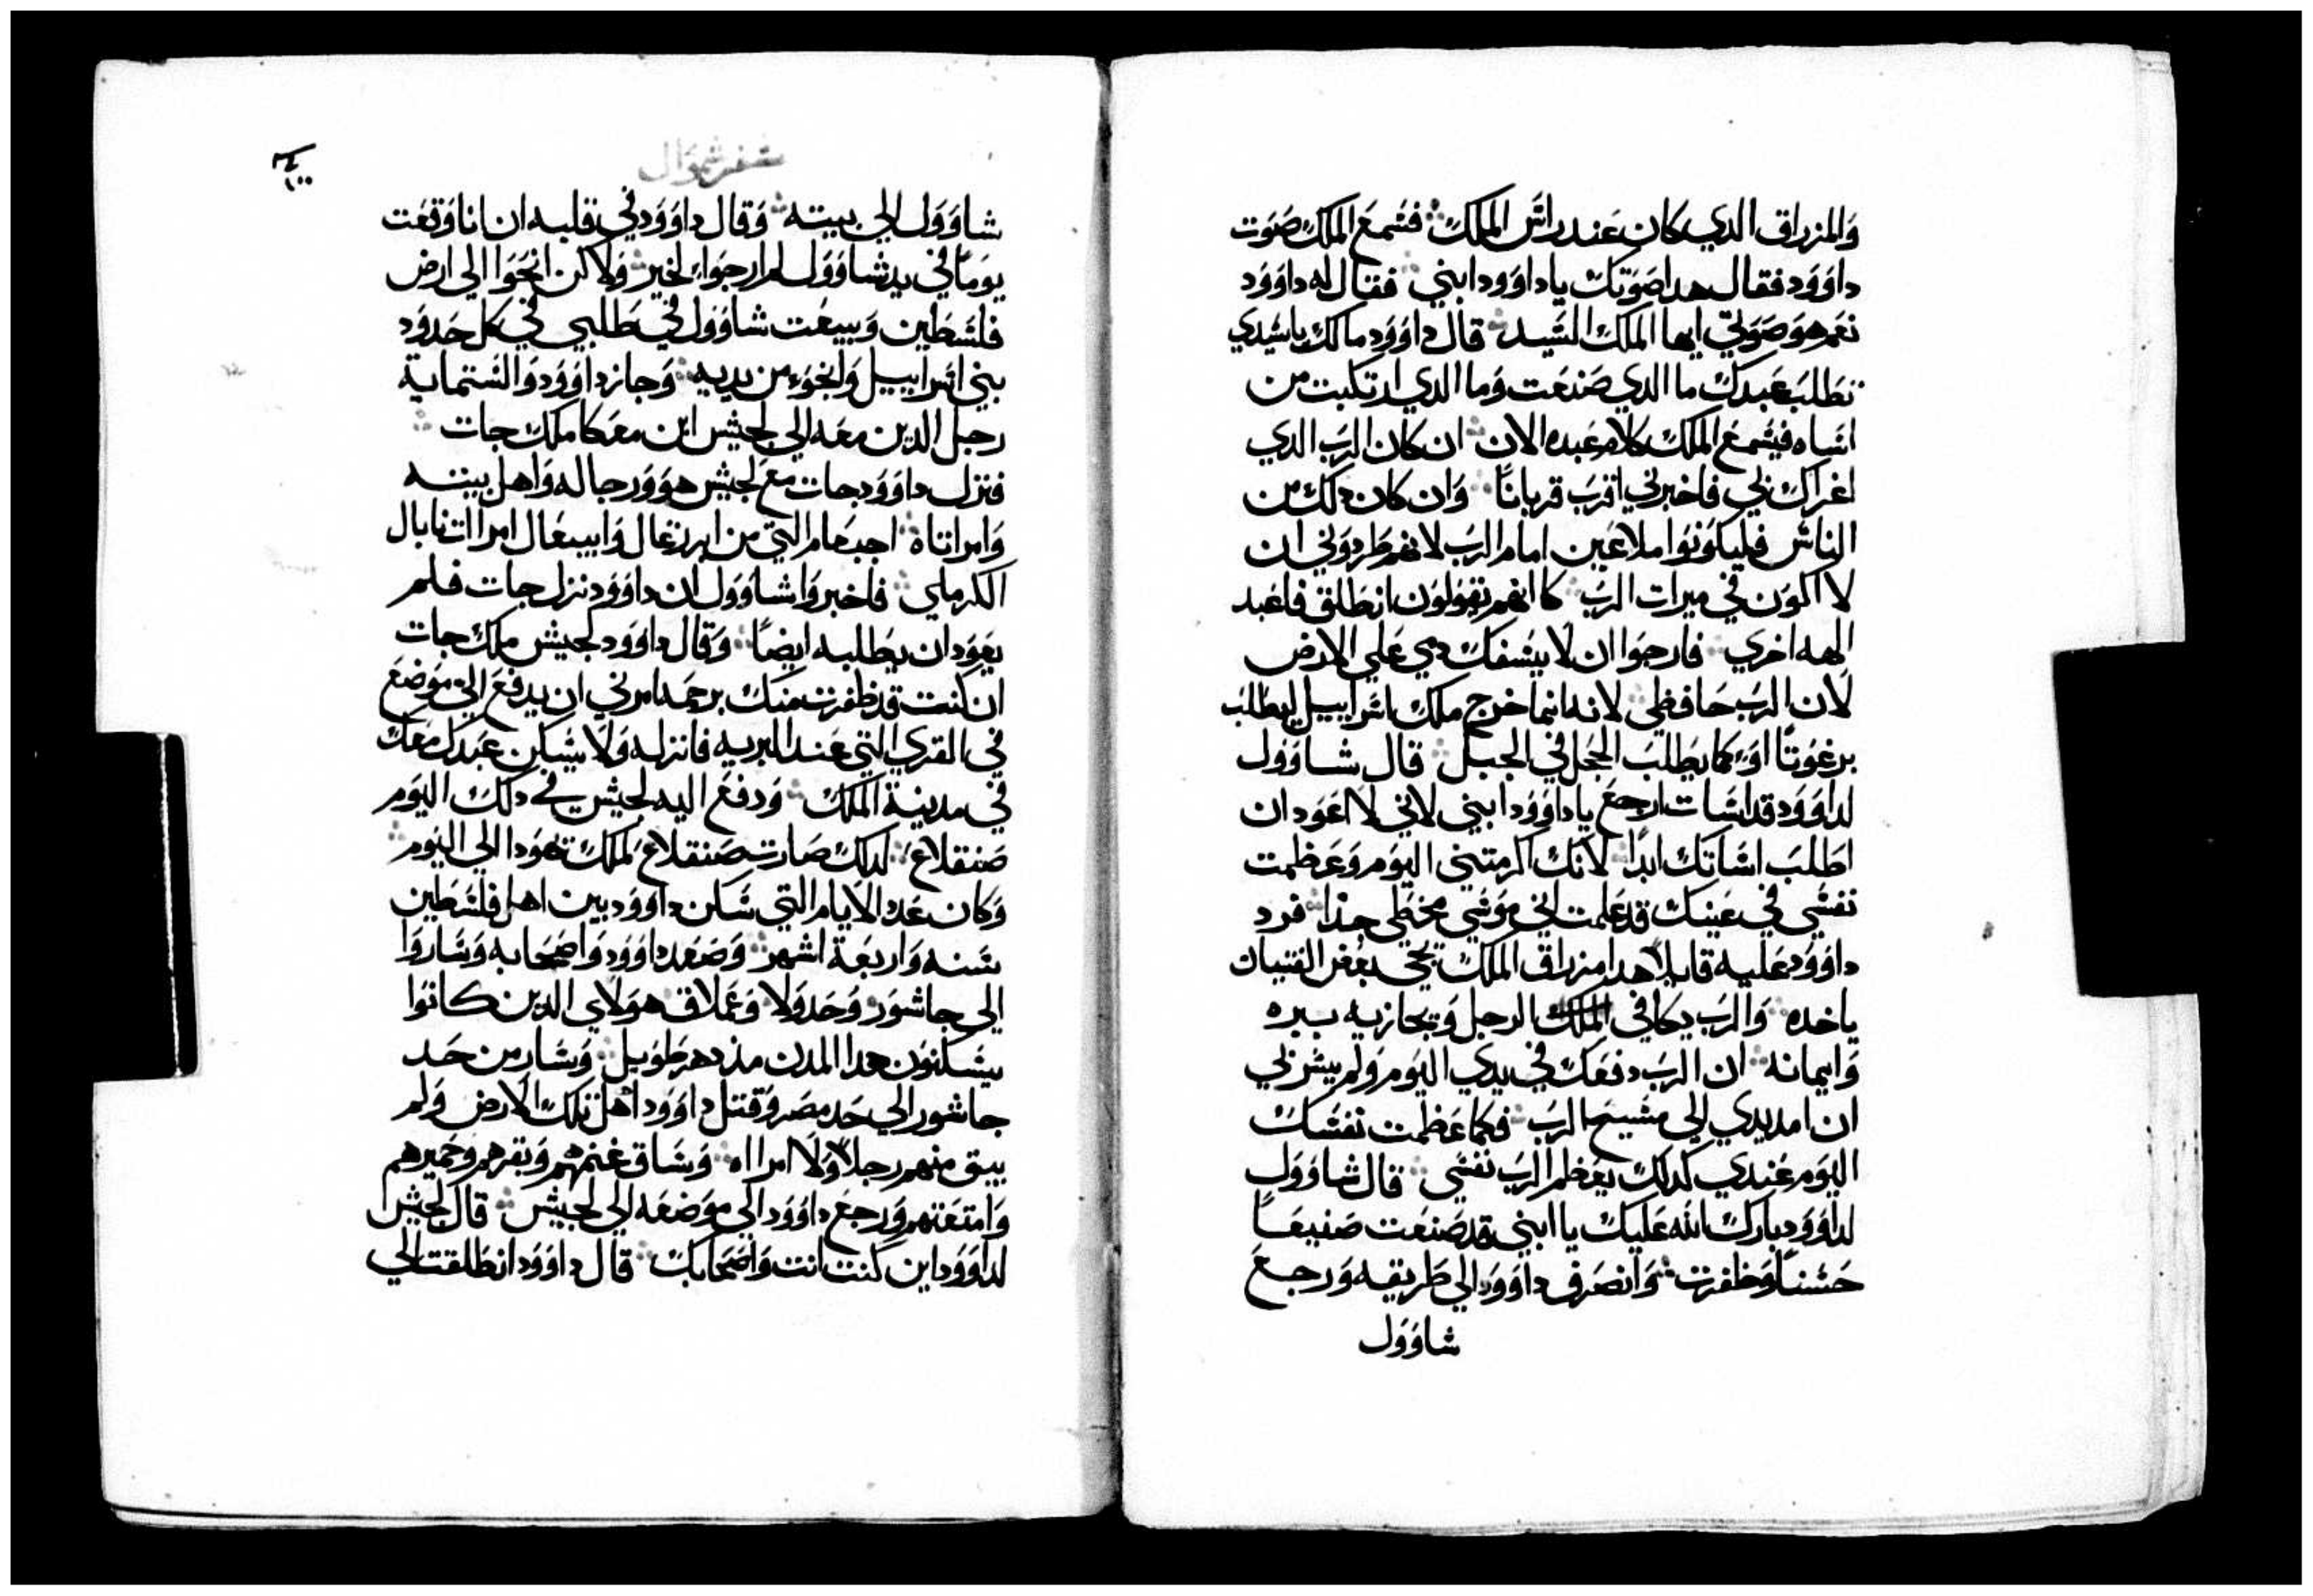 والمزراق الدي كان عند راس الملك فسمع الملك صوت
داوود فقال هدا صوتك ياداوود ابني فقال له داوود
نعم هو صوتي ايها الملك السيد قال داوود مالك ياسيدي
تطلب عبدك ما الدي صنعت وما الدي ارتكبت من
اساه فيسمع الملك كلام عبده الان ان كان الرب الدي
اغراك بي فاخبرني اقرب قربانا وان كان دلك من
الناس فليكونوا ملاعين امام الرب لانهم طردوني ان
لا اكون في ميرات الرب كانهم يقولون انطلق فاعبد
الهه اخري فارجوا ان لا يسفك دمي علي الارض
لان الرب حافظي لانه انما خرج ملك اسراييل ليطلب
برغوتا او كما يطلب الحجل في الجبل قال شاوول
لداوود قد اسات ارجع ياداوود ابني لاني لا اعود ان
اطلب اساتك ابدا لانك اكرمتني اليوم وعظمت
نفسي في عينك قد علمت اني موسي مخطي جدا فرد
داوود عليه قايلا هدا مزراق الملك يجي بعض الفتيان
ياخده والرب يكافي الرجل ويجازيه ببره
وايمانه ان الرب دفعك في يدي اليوم ولم يسر لي
ان امد يدي الي مسيح الرب فكما عظمت نفسك
اليوم عندي كدلك يعظم الرب نفسي قال شاوول
لداوود بارك الله عليك يا ابني قد صنعت صنيعا
حسنا وظفرت وانصرف داوود الي طريقه ورجع
شاوول
سفر شموال
شاوول الي بيته وقال داوود في قلبه ان انا وقعت
يوما في يد شاوول لم ارجوا لخير ولاكن انجوا الي ارض
فلسطين ويبيعت شاوول في طلبي في كل حدود
بني اسراييل وانجوء من يديه وجاز داوود والستماية
رجل الدين معه الي لجيش ابن معكا ملك جات
فنزل داوود جات مع لجيش هو ورجاله واهل بيته
وامراتاه اجيعام التي من ايرزغال وابيغال امراات نابال
الكرملي فاخبروا شاوول ان داوود نزل جات فلم
يعود ان يطلبه ايضا وقال داوود لجيش ملك جات
ان كنت قد ظفرت منك برحمه امرني ان يدفع الي موضع
في القري التي عند البريه فانزله ولا يسكن عبدك معك
في مدينة الملك ودفع اليه لجيش في دلك اليوم
صنقلاع لدلك صارت صنقلاع لملك يهودا الي اليوم
وكان عدد الايام التي سكن داوود بين اهل فلسطين
سنه واربعة اشهر وصعد داوود واصحابه وساروا
الي جاشور وحدولا وعملاق هولاي الدين كانوا
يسكنون هدا المدن مند دهر طويل وسار من حد
جاشور الي حد مصر وقتل داوود اهل تلك الارض ولم
يبق منهم رجلا ولا امرااه وساق غنمهم وبقرهم وحميرهم
وامتعتهم ورجع داوود الي موضعه الي لجيش قال لجيش
لداوود اين كنت انت واصحابك قال داوود انطلقت الي